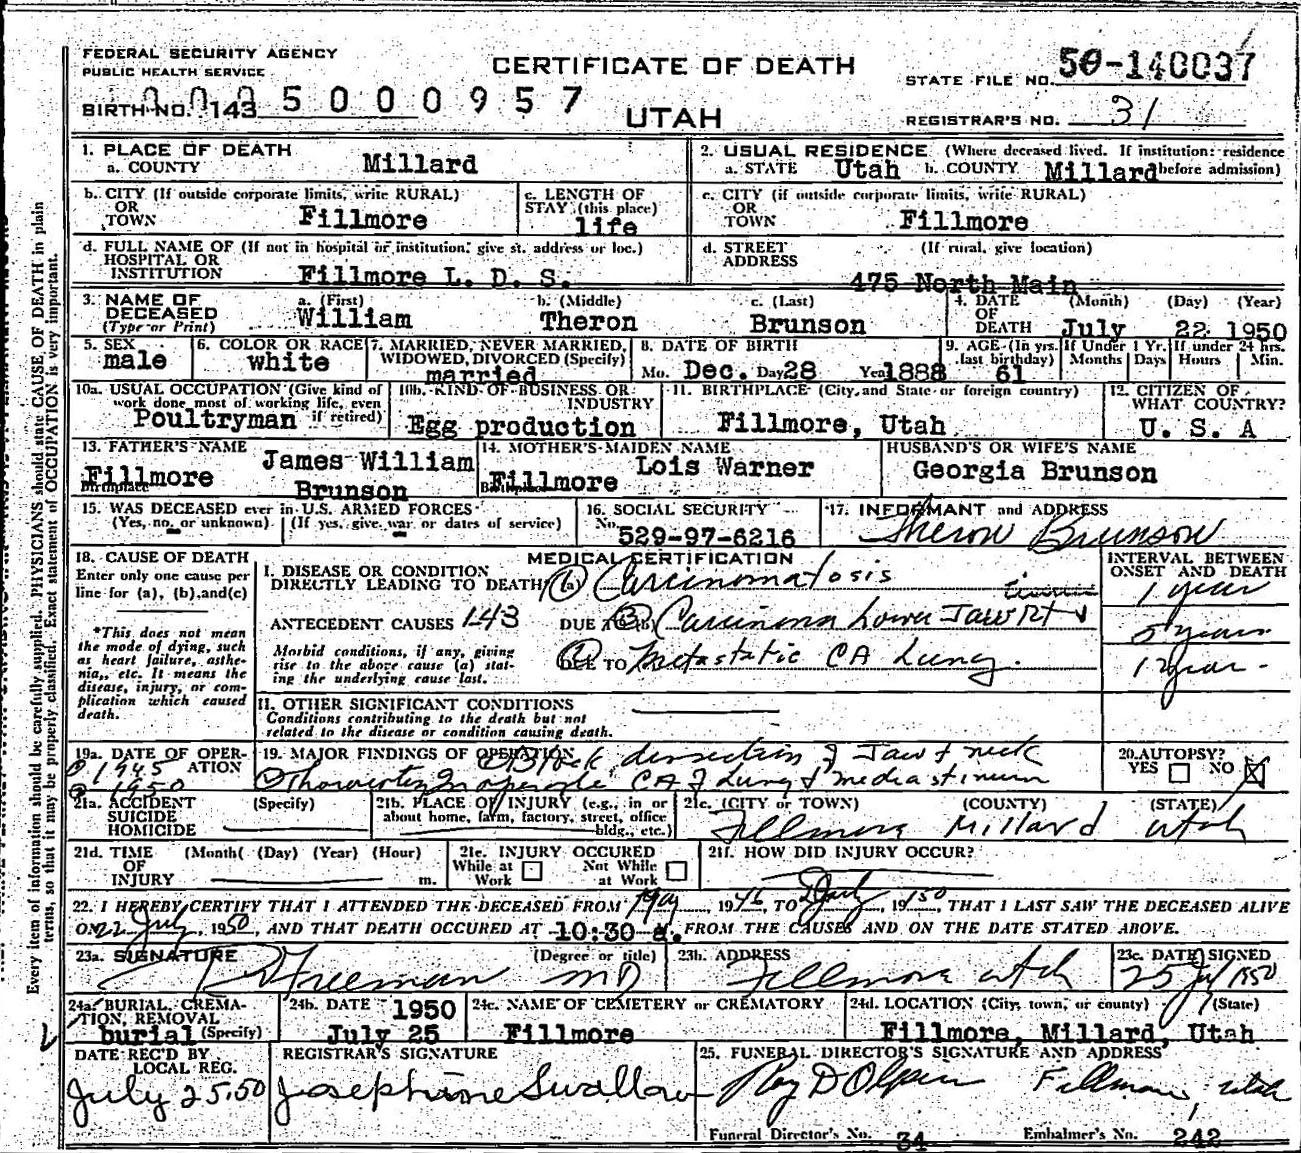 FEDERAL SECURITY AGENCY
PUBLIC HEALTH SERVICE
CERTIFICATE OF DEATH
STATE FILE NO. 50-140037
BIRTH NO. 143 5000957
UTAH
REGISTRAR'S NO. 31
1. PLACE OF DEATH
a. COUNTY Millard
2. USUAL RESIDENCE (Where deceased lived. If institution: residence before admission)
a. STATE Utah b. COUNTY Millard
b. CITY (If outside corporate limits, write RURAL)
OR
TOWN Fillmore
c. LENGTH OF
STAY (this place)
life
c. CITY (if outside corporate limits, write RURAL)
OR
TOWN Fillmore
d. FULL NAME OF (If not in hospital or institution, give st. address or loc.)
HOSPITAL OR
INSTITUTION Fillmore L. D. S.
d. STREET (If rural, give location)
ADDRESS
475 North Main
3. NAME OF
DECEASED
(Type or Print)
a. (First) b. (Middle) c. (Last)
William Theron Brunson
4. DATE (Month) (Day) (Year)
OF
DEATH July 22 1950
5. SEX
male
6. COLOR OR RACE
white
7. MARRIED, NEVER MARRIED,
WIDOWED, DIVORCED (Specify)
married
8. DATE OF BIRTH
Mo. Dec. Day 28 Year 1888
9. AGE (In yrs.
last birthday)
61
If Under 1 Yr.
Months Days
If under 24 hrs.
Hours Min.
10a. USUAL OCCUPATION (Give kind of
work done most of working life, even
if retired)
Poultryman
10b. KIND OF BUSINESS OR
INDUSTRY
Egg production
11. BIRTHPLACE (City, and State or foreign country)
Fillmore, Utah
12. CITIZEN OF
WHAT COUNTRY?
U. S. A
13. FATHER'S NAME
James William
Brunson
Fillmore
Birthplace
14. MOTHER'S MAIDEN NAME
Lois Warner
Fillmore
Birthplace
HUSBAND'S OR WIFE'S NAME
Georgia Brunson
15. WAS DECEASED ever in U.S. ARMED FORCES
(Yes, no, or unknown) (If yes, give war or dates of service)
16. SOCIAL SECURITY
No. 529-97-6216
17. INFORMANT and ADDRESS
Theron Brunson
18. CAUSE OF DEATH
Enter only one cause per
line for (a), (b), and (c)
*This does not mean
the mode of dying, such
as heart failure, asthe-
nia, etc. It means the
disease, injury, or com-
plication which caused
death.
MEDICAL CERTIFICATION
INTERVAL BETWEEN
ONSET AND DEATH
I. DISEASE OR CONDITION
DIRECTLY LEADING TO DEATH* (a) Carcinomatosis
1 year
ANTECEDENT CAUSES 143 DUE TO (b) Carcinoma Lower Jaw Rt
5 years
Morbid conditions, if any, giving
rise to the above cause (a) stat-
ing the underlying cause last.
DUE TO Metastatic CA Lung.
1 year
II. OTHER SIGNIFICANT CONDITIONS
Conditions contributing to the death but not
related to the disease or condition causing death.
19a. DATE OF OPER-
ATION
1945
1950
19. MAJOR FINDINGS OF OPERATION
Block dissection of Jaw & neck
inoperable CA of Lung & mediastinum
20. AUTOPSY?
YES NO X
21a. ACCIDENT (Specify)
SUICIDE
HOMICIDE
21b. PLACE OF INJURY (e.g., in or
about home, farm, factory, street, office
bldg., etc.)
21c. (CITY or TOWN) (COUNTY) (STATE)
Fillmore Millard Utah
21d. TIME (Month) (Day) (Year) (Hour)
OF
INJURY m.
21e. INJURY OCCURED
While at Work Not While at Work
21f. HOW DID INJURY OCCUR?
22. I HEREBY CERTIFY THAT I ATTENDED THE DECEASED FROM May, 1946, TO July, 1950, THAT I LAST SAW THE DECEASED ALIVE
ON 22 July, 1950, AND THAT DEATH OCCURED AT 10:30 a. FROM THE CAUSES AND ON THE DATE STATED ABOVE.
23a. SIGNATURE (Degree or title)
Freeman MD
23b. ADDRESS
Fillmore Utah
23c. DATE SIGNED
25 July 1950
24a. BURIAL, CREMA-
TION, REMOVAL
burial (Specify)
24b. DATE 1950
July 25
24c. NAME OF CEMETERY or CREMATORY
Fillmore
24d. LOCATION (City, town, or county) (State)
Fillmore, Millard, Utah
DATE REC'D BY
LOCAL REG.
July 25.50
REGISTRAR'S SIGNATURE
Josephine Swallow
25. FUNERAL DIRECTOR'S SIGNATURE AND ADDRESS
Roy D Olpin Fillmore, Utah
Funeral Director's No. 34 Embalmer's No. 242
Every item of information should be carefully supplied. PHYSICIANS should state CAUSE OF DEATH in plain
terms, so that it may be properly classified. Exact statement of OCCUPATION is very important.